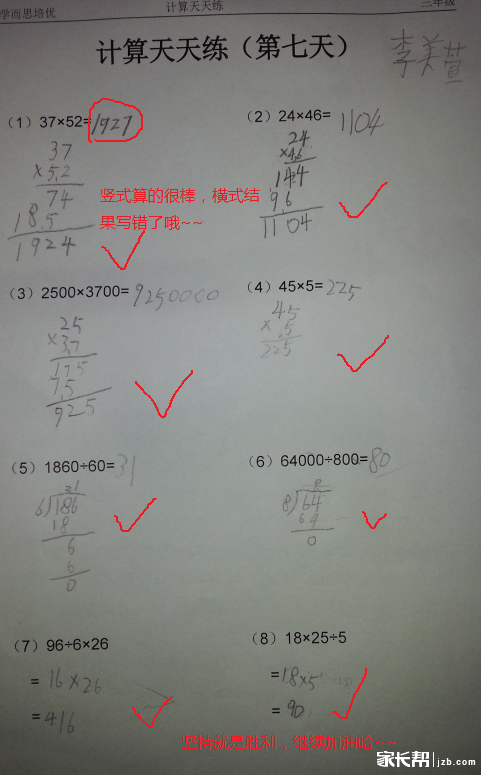 学而思培优 计算天天练 三年级
计算天天练（第七天）
李美萱
（1）37×52=1927
37
×5,2
74
18,5
1924
竖式算的很棒，横式结
果写错了哦~~
（2）24×46=1104
24
×4,6
144
9,6
1104
（3）2500×3700=9250000
25
×3,7
175
7,5
925
（4）45×5=225
45
×,5
225
（5）1860÷60=31
31
6)186
18
6
6
0
（6）64000÷800=80
8
8)64
64
0
（7）96÷6×26
=16×26
=416
（8）18×25÷5
=18×5
=90
坚持就是胜利，继续加油哈~~
家长帮 jzb.com